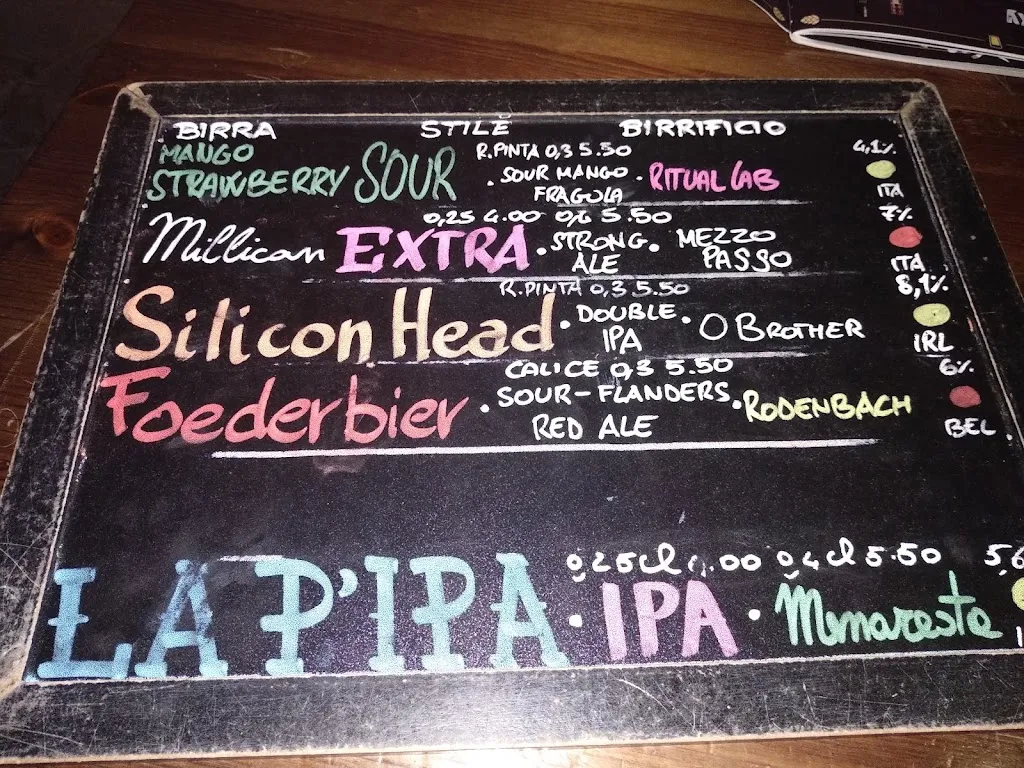 BIRRA STILE BIRRIFICIO
MANGO R.PINTA 0,3 5.50 4,1%
STRAWBERRY SOUR . SOUR MANGO . RITUAL LAB
FRAGOLA ITA
0,25 4.00 0,4 5.50 7%
Millican EXTRA . STRONG . MEZZO
ALE PASSO ITA
R.PINTA 0,3 5.50 8,1%
Silicon Head . DOUBLE . O BROTHER
IPA IRL
CALICE 0,3 5.50 6%
Foederbier . SOUR-FLANDERS . RODENBACH
RED ALE BEL
0,25cl 4.00 0,4cl 5.50 5,6
LA P'IPA . IPA . Menaresta